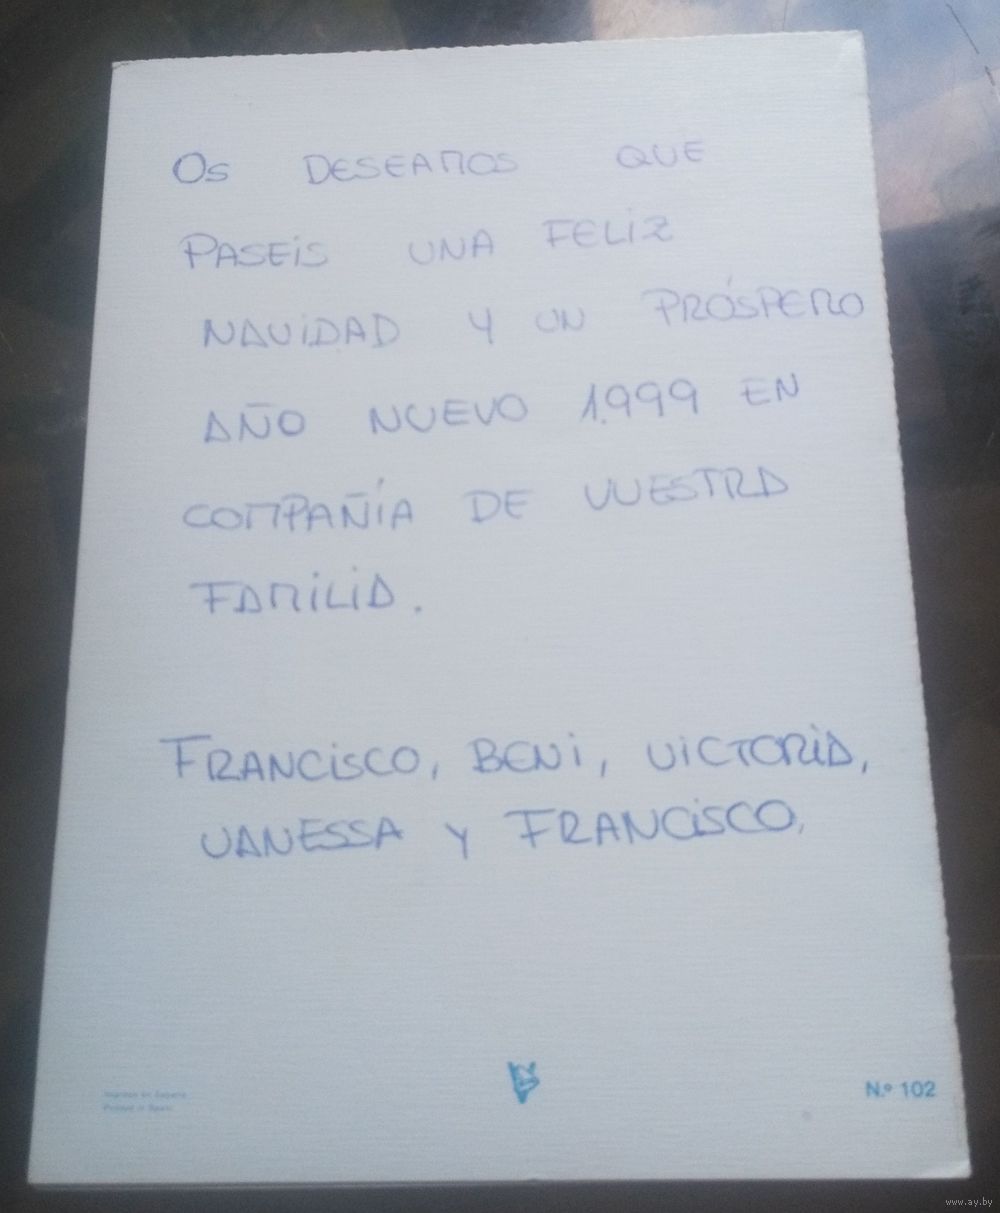 Os DESEAMOS QUE
PASEiS UNA FELiZ
NAViDAD Y UN PRÓSPERO
AÑO NUEVO 1.999 EN
COMPAÑÍA DE VUESTRA
FAMiLiA.
FRANCiSCO, BENi, ViCTORiA,
VANESSA Y FRANCiSCO.
Printed in Spain
N.º 102
www.ay.by